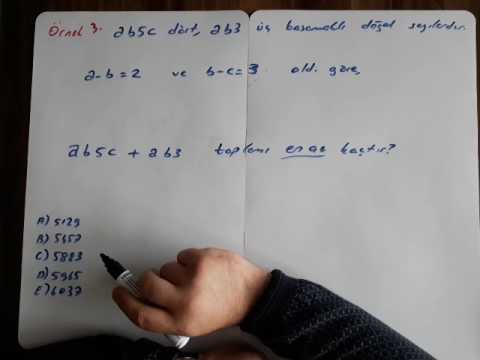 Örnek 3. ab5c dört, ab3 üç basamaklı doğal sayılardır.
a-b=2 ve b-c=3 old. göre,
ab5c + ab3 toplamı en az kaçtır?
A) 5129
B) 5457
C) 5883
D) 5965
E) 6037